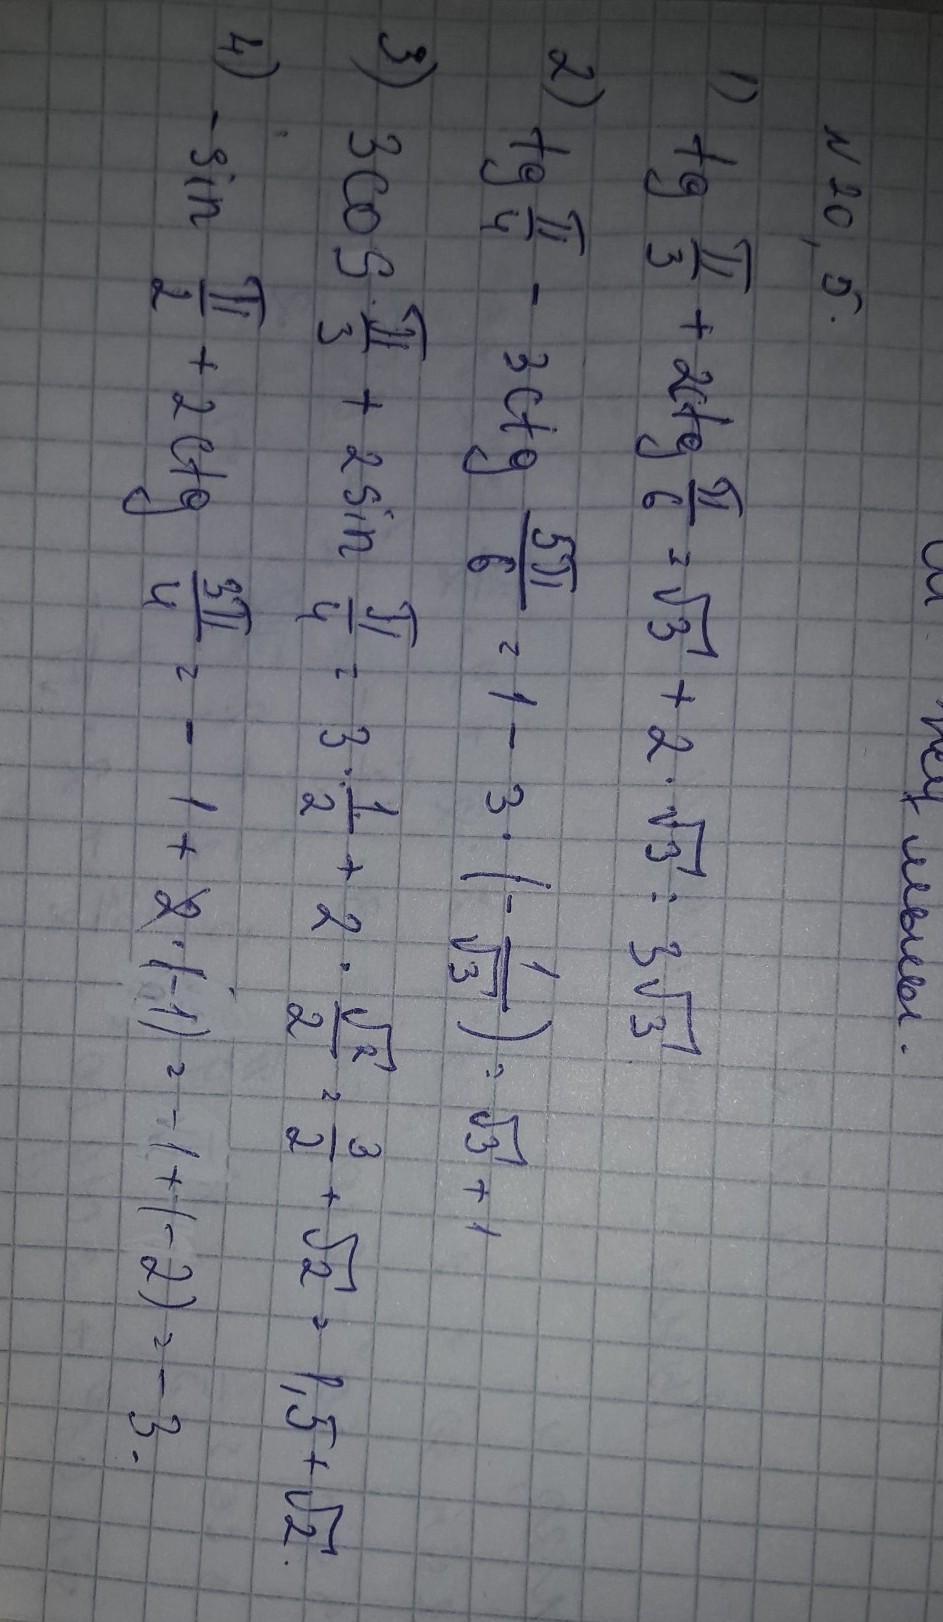 N 20, 5.
1) tg π/3 + 2ctg π/6 = √3 + 2 · √3 = 3√3
2) tg π/4 - 3 ctg 5π/6 = 1 - 3 · (- 1/√3) = √3 + 1
3) 3cos π/3 + 2 sin π/4 = 3 · 1/2 + 2 · √2/2 = 3/2 + √2 = 1,5 + √2.
4) - sin π/2 + 2 ctg 3π/4 = - 1 + 2 · (-1) = -1 + (-2) = - 3.